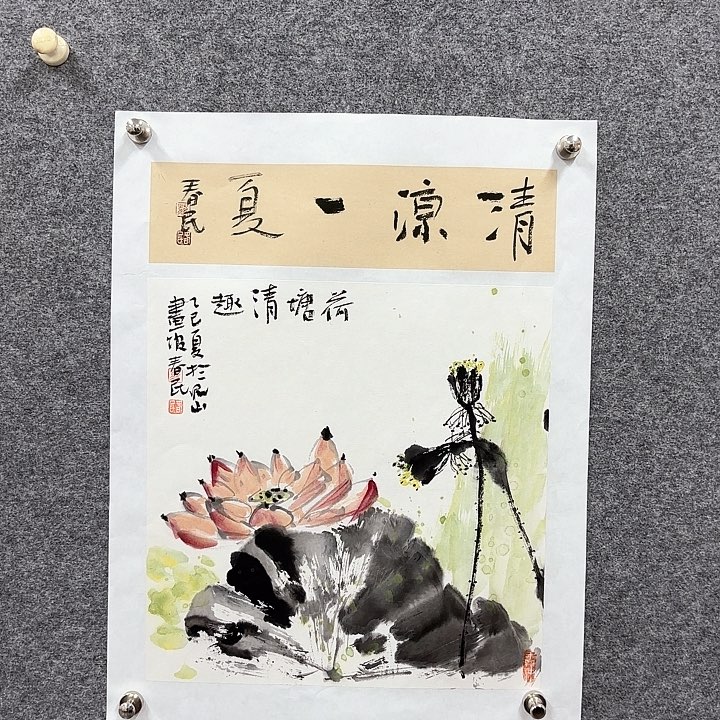 清凉一夏
春民
荷塘清趣
乙巳夏於
山
畫
春民